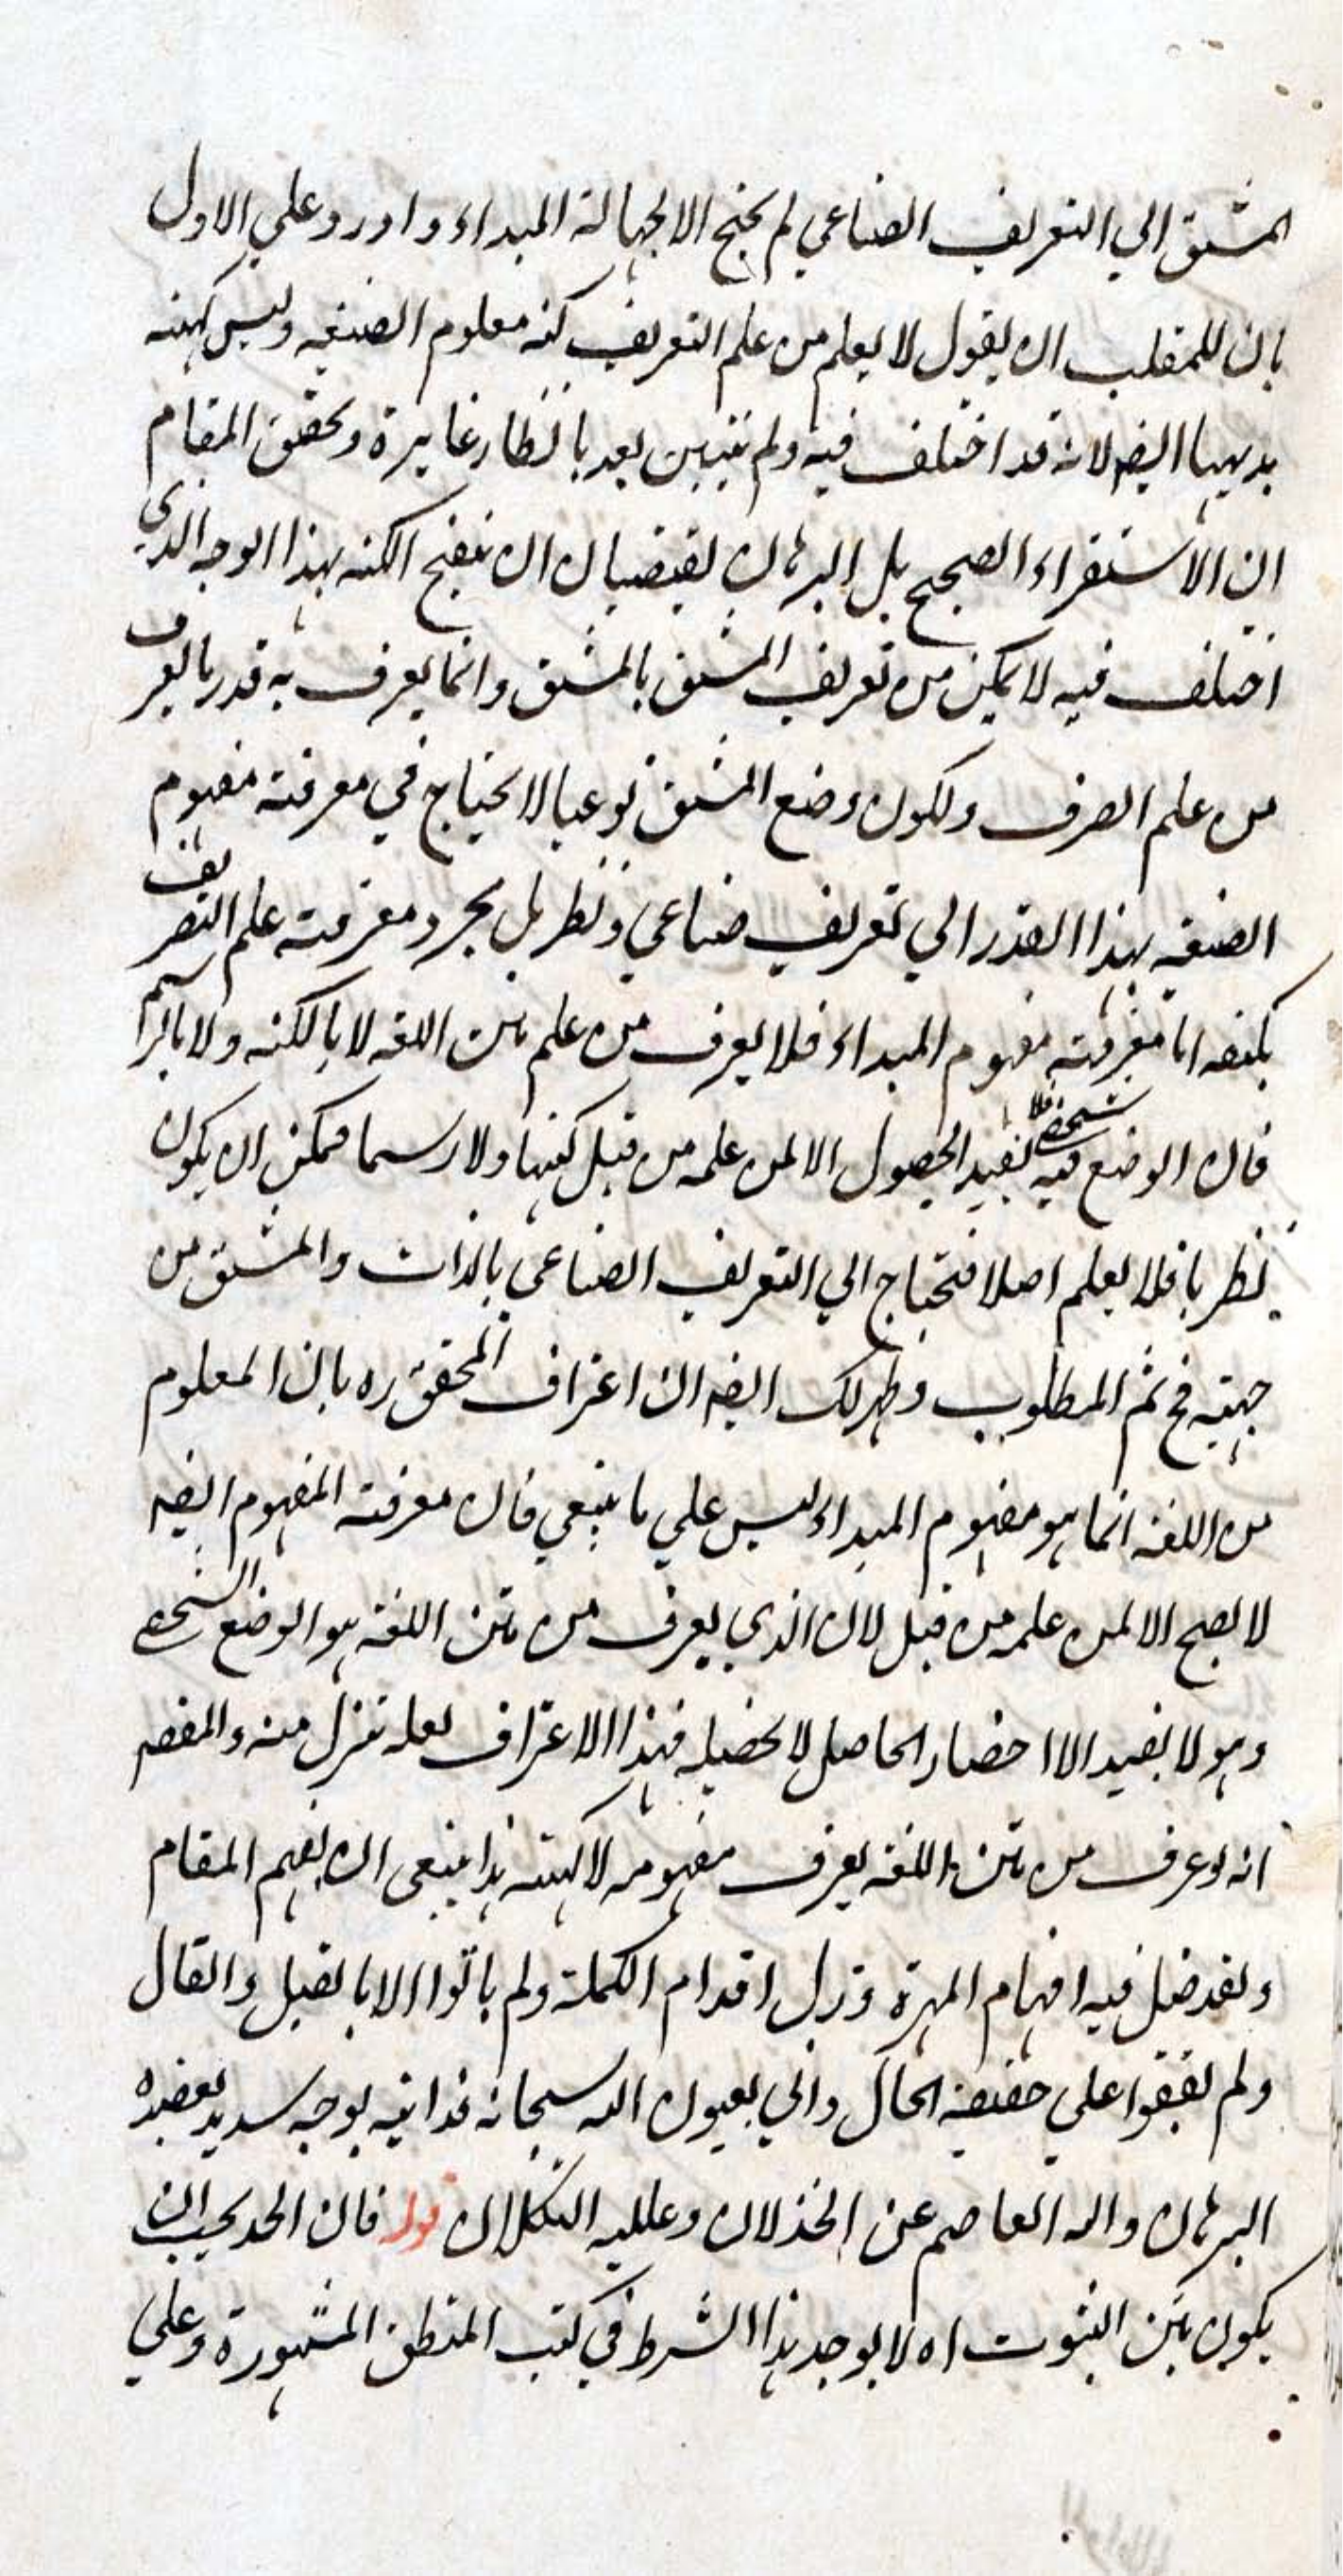 المشتق الي التعريف الصناعي لم يحتج الا لجهالة المبداء واورد علي الاول
بان للمتقلب ان يقول لا يعلم من علم التعريف كنه معلوم الصيغه وليس كنهه
بديهيا ايضه لانه قد اختلف فيه ولم يتبين بعد بانظار غايرة وتحقق المقام
ان الاستقراء الصحيح بل البرهان يقتضيان ان تنقيح الكنه بهذا الوجه الذي
اختلف فيه لا يمكن من تعريف المشتق بالمشتق وانما يعرف به قدر ما يعرف
من علم الصرف ولكون وضع المشتق نوعيا لا يحتاج في معرفته مفهوم
الصيغه بهذا القدر الي تعريف صناعي ونظر بل بمجرد معرفته علم التصريف
يكفيه اما معرفته مفهوم المبداء فلا يعرف من علم متن اللغه لا بالكنه ولا بالرسم
فان الوضع فيه شخصي فلا يفيد الحصول الا لمن علمه من قبل كنها ولا رسما فمكن ان يكون
نظريا فلا يعلم اصلا فتحتاج الي التعريف الصناعي بالذات والمشتق من
جهته فح تم المطلوب وظهر لك ايضه ان اعتراف المحقق ره بان المعلوم
من اللغه انما هو مفهوم المبداء ليس علي ما ينبغي فان معرفته المفهوم ايضه
لا يصح الا لمن علمه من قبل لان الذي يعرف من متن اللغة هو الوضع الشخصي
وهو لا يفيد الا احضار الحاصل لا تحصيله فهذا الاعتراف لعله تنزل منه والمقصر
انه لو عرف من متن اللغه يعرف مفهومه لا كنهه هذا ينبغي ان يفهم المقام
ولقد ضل فيه افهام المهرة وزل اقدام الكملة ولم ياتوا الا بالقيل والقال
ولم يقفوا علي حقيقة الحال واني بعون الله سبحانه قد اتيه بوجه سديد يعضده
البرهان والله العاصم عن الخذلان وعليه التكلان قوله فان الحد يجب ان
يكون بين الثبوت اه لا يوجد هذا الشرط في كتب المنطق المشهورة وعلي